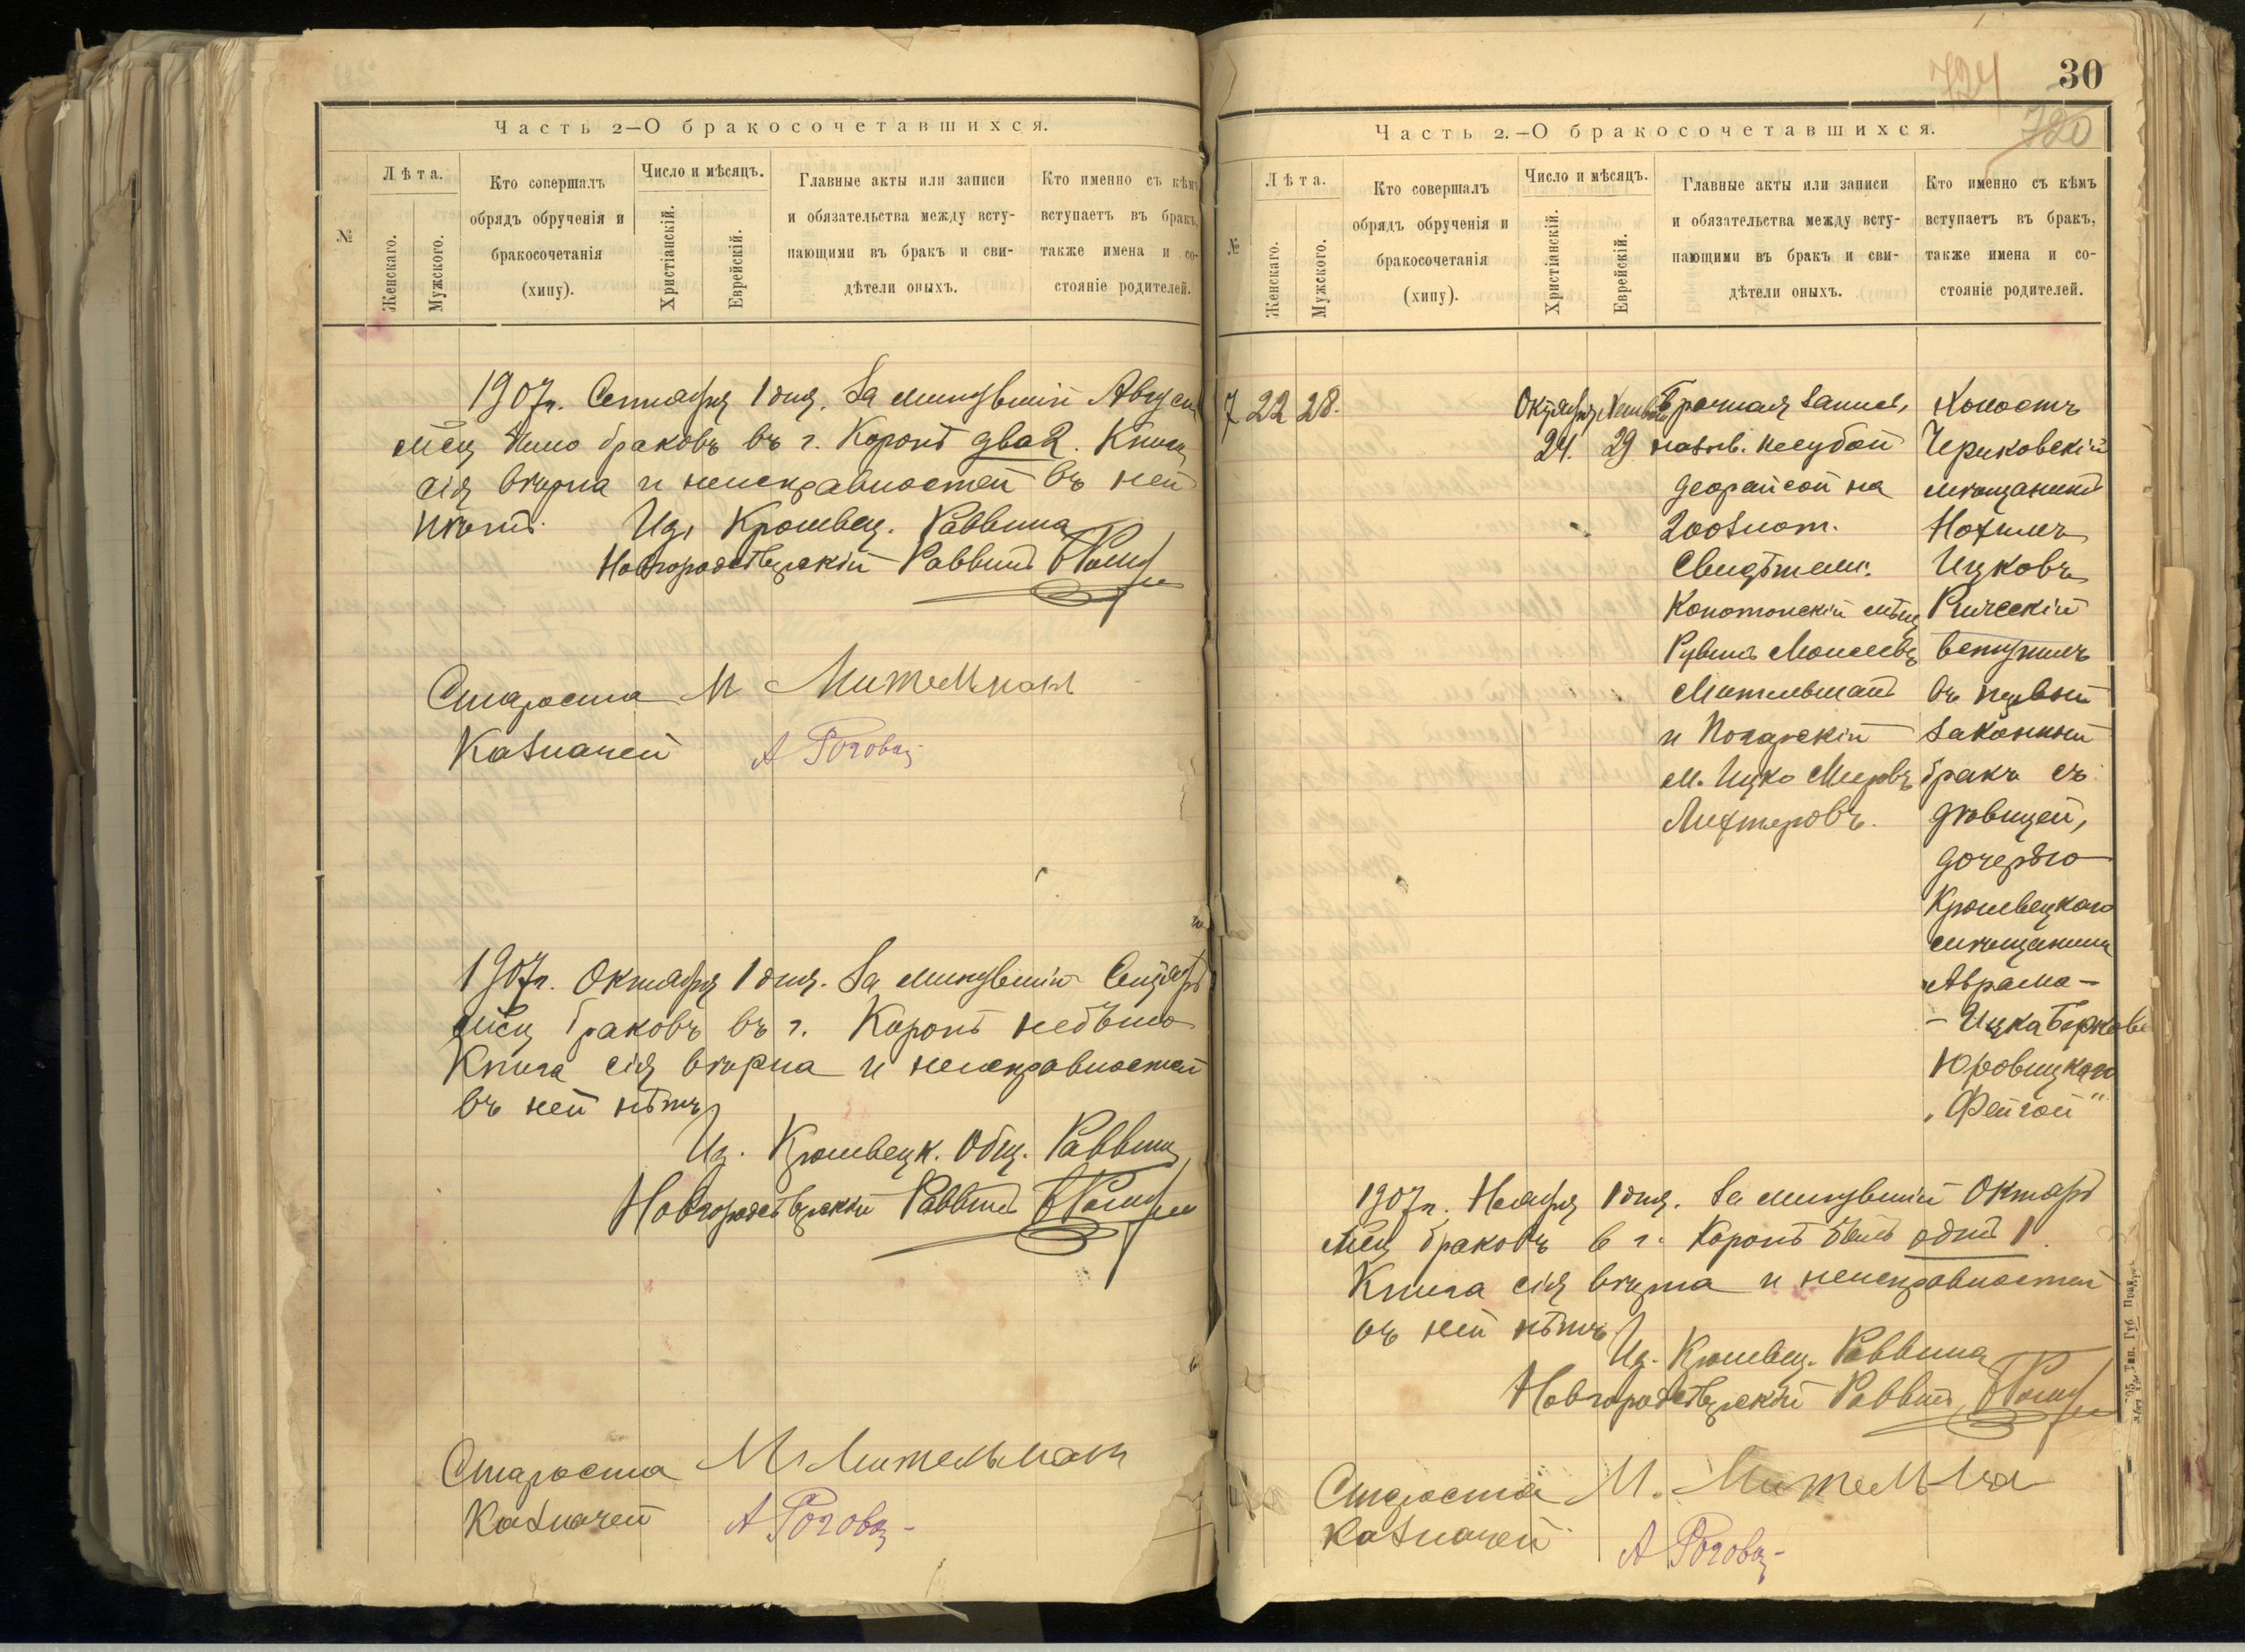 Часть 2—О бракосочетавшихся.
№
Лѣта.
Женскаго.
Мужского.
Кто совершалъ
обрядъ обрученія и
бракосочетанія
(хипу).
Число и мѣсяцъ.
Христіанскій.
Еврейскій.
Главные акты или записи
и обязательства между всту-
пающими въ бракъ и сви-
дѣтели оныхъ.
Кто именно съ кѣмъ
вступаетъ въ бракъ,
также имена и со-
стояніе родителей.
1907г. Сентября 1 дня. За минувшій Август
мѣсц было браковъ въ г. Коропѣ два 2. Книга
сія вѣрна и неисправностей въ ней
нѣтъ. Ид. Кролевец. Раввина
Новгородсѣверскій Раввинъ
Староста М Мительман
Казначей А Рогова
1907г. Октября 1 дня. За минувшій Сентябрь
мѣсц браковъ въ г. Коропѣ небыло
Книга сія вѣрна и неисправностей
въ ней нѣтъ
Ид. Кролевецк. Общ. Раввина
Новгородсѣверскій Раввинъ
Староста М Мительман
Казначей А Рогова
724
30
720
Часть 2.—О бракосочетавшихся.
№
Лѣта.
Женскаго.
Мужского.
Кто совершалъ
обрядъ обрученія и
бракосочетанія
(хипу).
Число и мѣсяцъ.
Христіанскій.
Еврейскій.
Главные акты или записи
и обязательства между всту-
пающими въ бракъ и сви-
дѣтели оныхъ.
Кто именно съ кѣмъ
вступаетъ въ бракъ,
также имена и со-
стояніе родителей.
7 22 28.
Октября
24.
29
Брачная запись,
назыв. кесубой
деорайсой на
200 злот.
Свидѣтели:
Конотопскій мѣщ
Рувинъ Моисеевъ
Мительманъ
и Погарскій
м. Ицко Мееровъ
Лихтеровъ.
Холостъ
Чериковскій
мѣщанинъ
Нохимъ
Ицковъ
Рическій
вступилъ
въ первый
законный
бракъ съ
дѣвицей,
дочерью
Кролевецкаго
мѣщанина
Абрама-
- Ицка Беркова
Юровицкаго
„Фейгой"
1907г. Ноября 1 дня. За минувшій Октябрь
мѣсц браковъ в г. Коропѣ былъ одинъ 1.
Книга сія вѣрна и неисправностей
въ ней нѣтъ
Ид. Кролевец. Раввина
Новгородсѣверскій Раввинъ
Староста М. Мительма
Казначей А Рогова